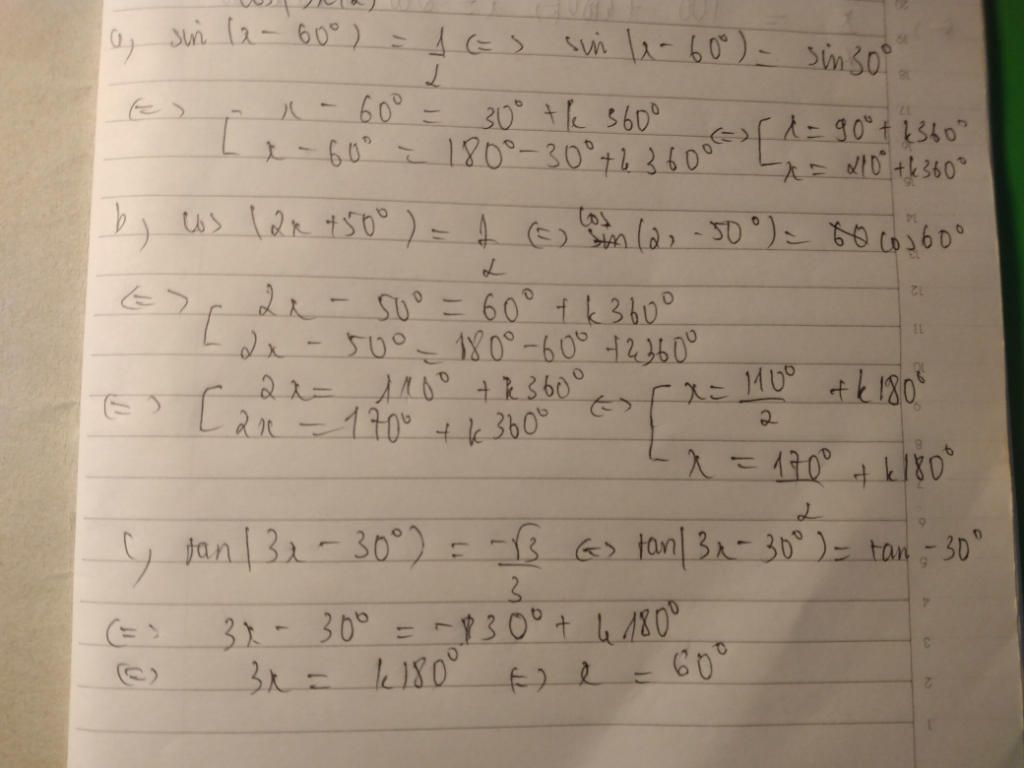 a, sin (x - 60°) = 1/2 <=> sin (x - 60°) = sin 30°
<=> [ x - 60° = 30° + k 360°
x - 60° = 180° - 30° + k 360° <=> [ x = 90° + k360°
x = 210° + k360°
b, cos (2x + 50°) = 1/2 <=> cos (2x - 50°) = cos 60°
<=> [ 2x - 50° = 60° + k360°
2x - 50° = 180° - 60° + k360°
<=> [ 2x = 110° + k360° <=> [ x = 110°/2 + k180°
2x = 170° + k360°
x = 170°/2 + k180°
c, tan (3x - 30°) = -√3/3 <=> tan (3x - 30°) = tan - 30°
<=> 3x - 30° = - 30° + k 180°
<=> 3x = k180° <=> x = 60°